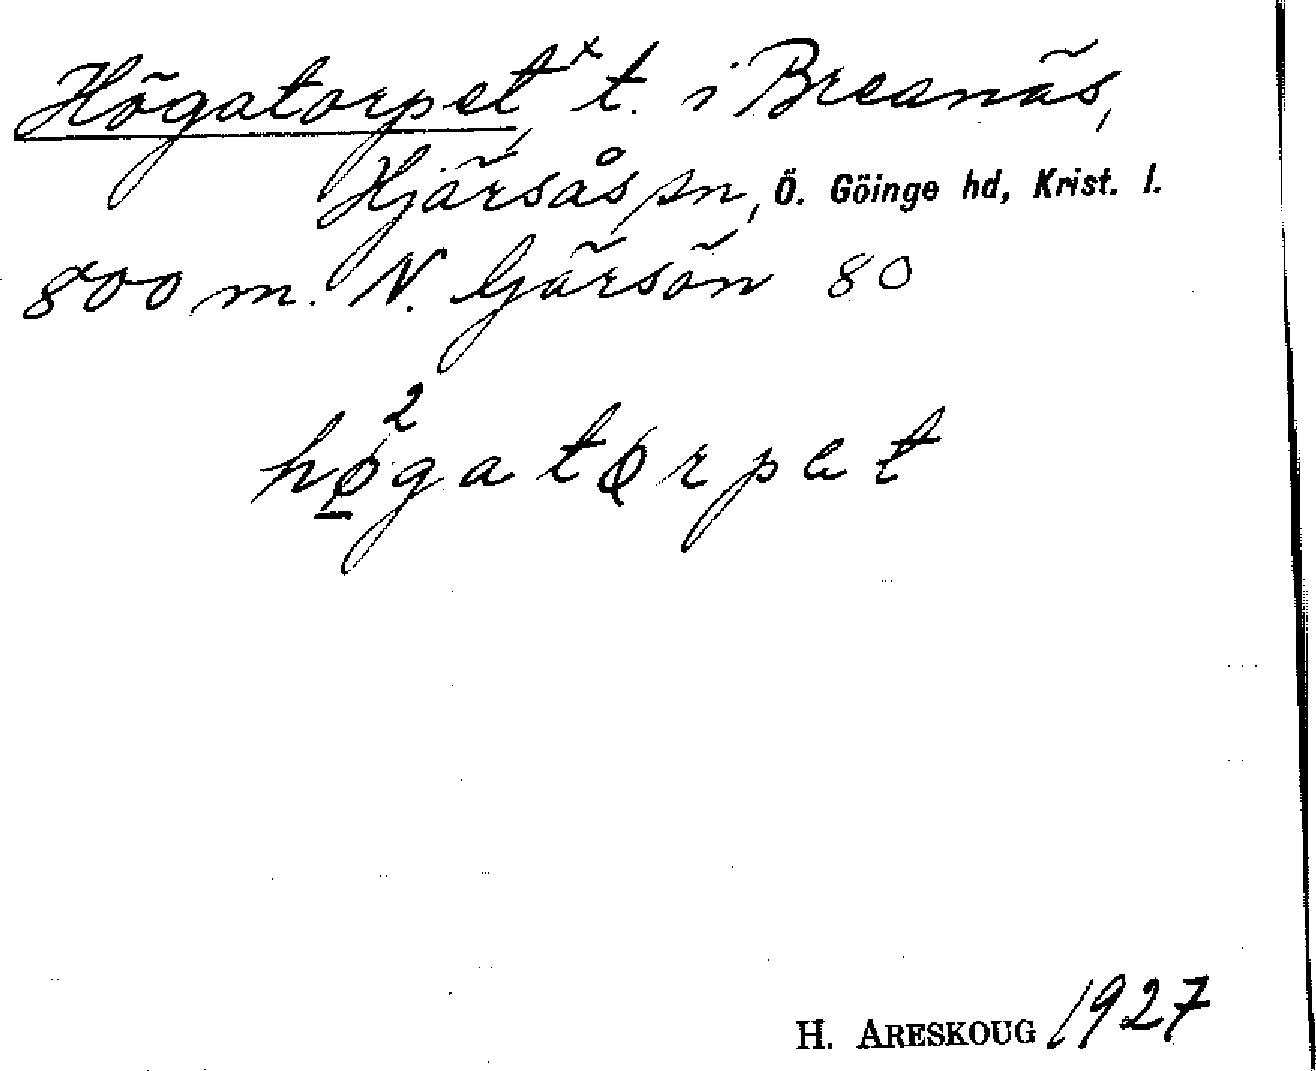 Högatorpet x t. i Breanäs,
Hjärsås sn, Ö. Göinge hd, Krist. l.
800 m. N. Gärsön 80
hø²gatørpet
H. ARESKOUG 1927